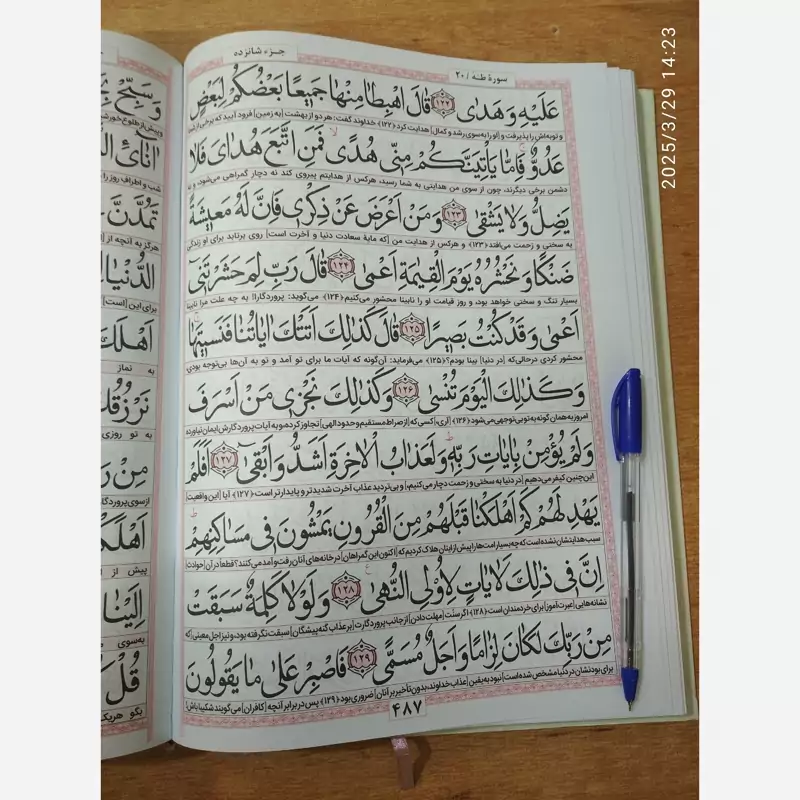 جزء شانزده
سورهٔ طه / ۲۰
عَلَيْهِ وَ هَدٰى ﴿۱۲۲﴾ قٰالَ اهْبِطٰا مِنْهٰا جَمِيعًا بَعْضُكُمْ لِبَعْضٍ
و توبه‌اش را پذیرفت و [او را به سوی رشد و کمال] هدایت کرد ﴿۱۲۲﴾ خداوند گفت: هر دو از بهشت [به زمین] فرود آیید که برخی از شما
عَدُوٌّ فَاِمّٰا يَأْتِيَنَّكُمْ مِنِّى هُدًى فَمَنِ اتَّبَعَ هُدٰاىَ فَلٰا
دشمن برخی دیگرند، چون از سوی من هدایتی به شما رسید، هرکس از هدایتم پیروی کند نه دچار گمراهی می‌شود، و نه
يَضِلُّ وَ لٰا يَشْقٰى ﴿۱۲۳﴾ وَ مَنْ اَعْرَضَ عَنْ ذِكْرِى فَاِنَّ لَهُ مَعِيشَةً
به سختی و زحمت می‌افتد ﴿۱۲۳﴾ و هرکس از هدایت من [که مایهٔ سعادت دنیا و آخرت است] روی برتابد برای او زندگی
ضَنْكًا وَ نَحْشُرُهُ يَوْمَ الْقِيٰمَةِ اَعْمٰى ﴿۱۲۴﴾ قٰالَ رَبِّ لِمَ حَشَرْتَنِى
بسیار تنگ و سختی خواهد بود، و روز قیامت او را نابینا محشور می‌کنیم ﴿۱۲۴﴾ می‌گوید: پروردگارا! به چه علت مرا نابینا
اَعْمٰى وَ قَدْ كُنْتُ بَصِيرًا ﴿۱۲۵﴾ قٰالَ كَذٰلِكَ اَتَتْكَ اٰيٰاتُنٰا فَنَسِيتَهٰا
محشور کردی درحالی‌که [در دنیا] بینا بودم؟ ﴿۱۲۵﴾ می‌فرماید: آن‌گونه که آیات ما برای تو آمد و تو به آن‌ها بی‌توجه بودی
وَ كَذٰلِكَ الْيَوْمَ تُنْسٰى ﴿۱۲۶﴾ وَ كَذٰلِكَ نَجْزِى مَنْ اَسْرَفَ
امروز به همان گونه به تو بی توجهی می‌شود ﴿۱۲۶﴾ [آری] کسی که [از صراط مستقیم و حدود الهی] تجاوز کرده، و به آیات پروردگارش ایمان نیاورده
وَ لَمْ يُؤْمِنْ بِاٰيٰاتِ رَبِّهِ وَ لَعَذٰابُ الْاٰخِرَةِ اَشَدُّ وَ اَبْقٰى ﴿۱۲۷﴾ اَفَلَمْ
این چنین کیفر می‌دهیم [در دنیا به سختی و زحمت دچار می‌کنیم]، و بی‌تردید عذاب آخرت شدیدتر و پایدارتر است ﴿۱۲۷﴾ آیا [این واقعیت]
يَهْدِ لَهُمْ كَمْ اَهْلَكْنٰا قَبْلَهُمْ مِنَ الْقُرُونِ يَمْشُونَ فِى مَسٰاكِنِهِمْ
سبب هدایتشان نشده است که چه بسیار امت‌ها را پیش از اینان هلاک کردیم که [اکنون این گمراهان] در خانه‌های آنان رفت و آمد می‌کنند؟ قطعاً در آن [حوادث]
اِنَّ فِى ذٰلِكَ لَاٰيٰاتٍ لِاُولِى النُّهٰى ﴿۱۲۸﴾ وَ لَوْ لٰا كَلِمَةٌ سَبَقَتْ
نشانه‌هایی [عبرت‌آموز] برای خردمندان است ﴿۱۲۸﴾ اگر سنّت [مهلت دادن] از جانب پروردگارت [بر عذاب گنه پیشگان] سبقت نگرفته بود، و نیز اجل معینی [که
مِنْ رَبِّكَ لَكٰانَ لِزٰامًا وَ اَجَلٌ مُسَمًّى ﴿۱۲۹﴾ فَاصْبِرْ عَلٰى مٰا يَقُولُونَ
برای بودنشان در دنیا مشخص شده است] نبود به یقین [عذاب خداوند، بدون تأخیر بر آنان] ضروری بود ﴿۱۲۹﴾ پس در برابر آنچه [کافران] می‌گویند شکیبا باش
۴۸۷
وَ سَبِّحْ بِحَ
و پیش از طلوع خورشید
اٰنٰائِ الَّ
شب و اطراف روز را
تَمُدَّنَّ
هرگز به آنچه از
الدُّنْيٰا
برای این [است]
اَهْلَكَ
به نماز
نَرْزُقُكَ
به تو روزی
مِنْ رَ
از سوی پروردگار
اَهْلَكْ
پیش از
اِلَيْنٰا
به‌سوی
قُلْ
بگو هریک
2025/3/29 14:23